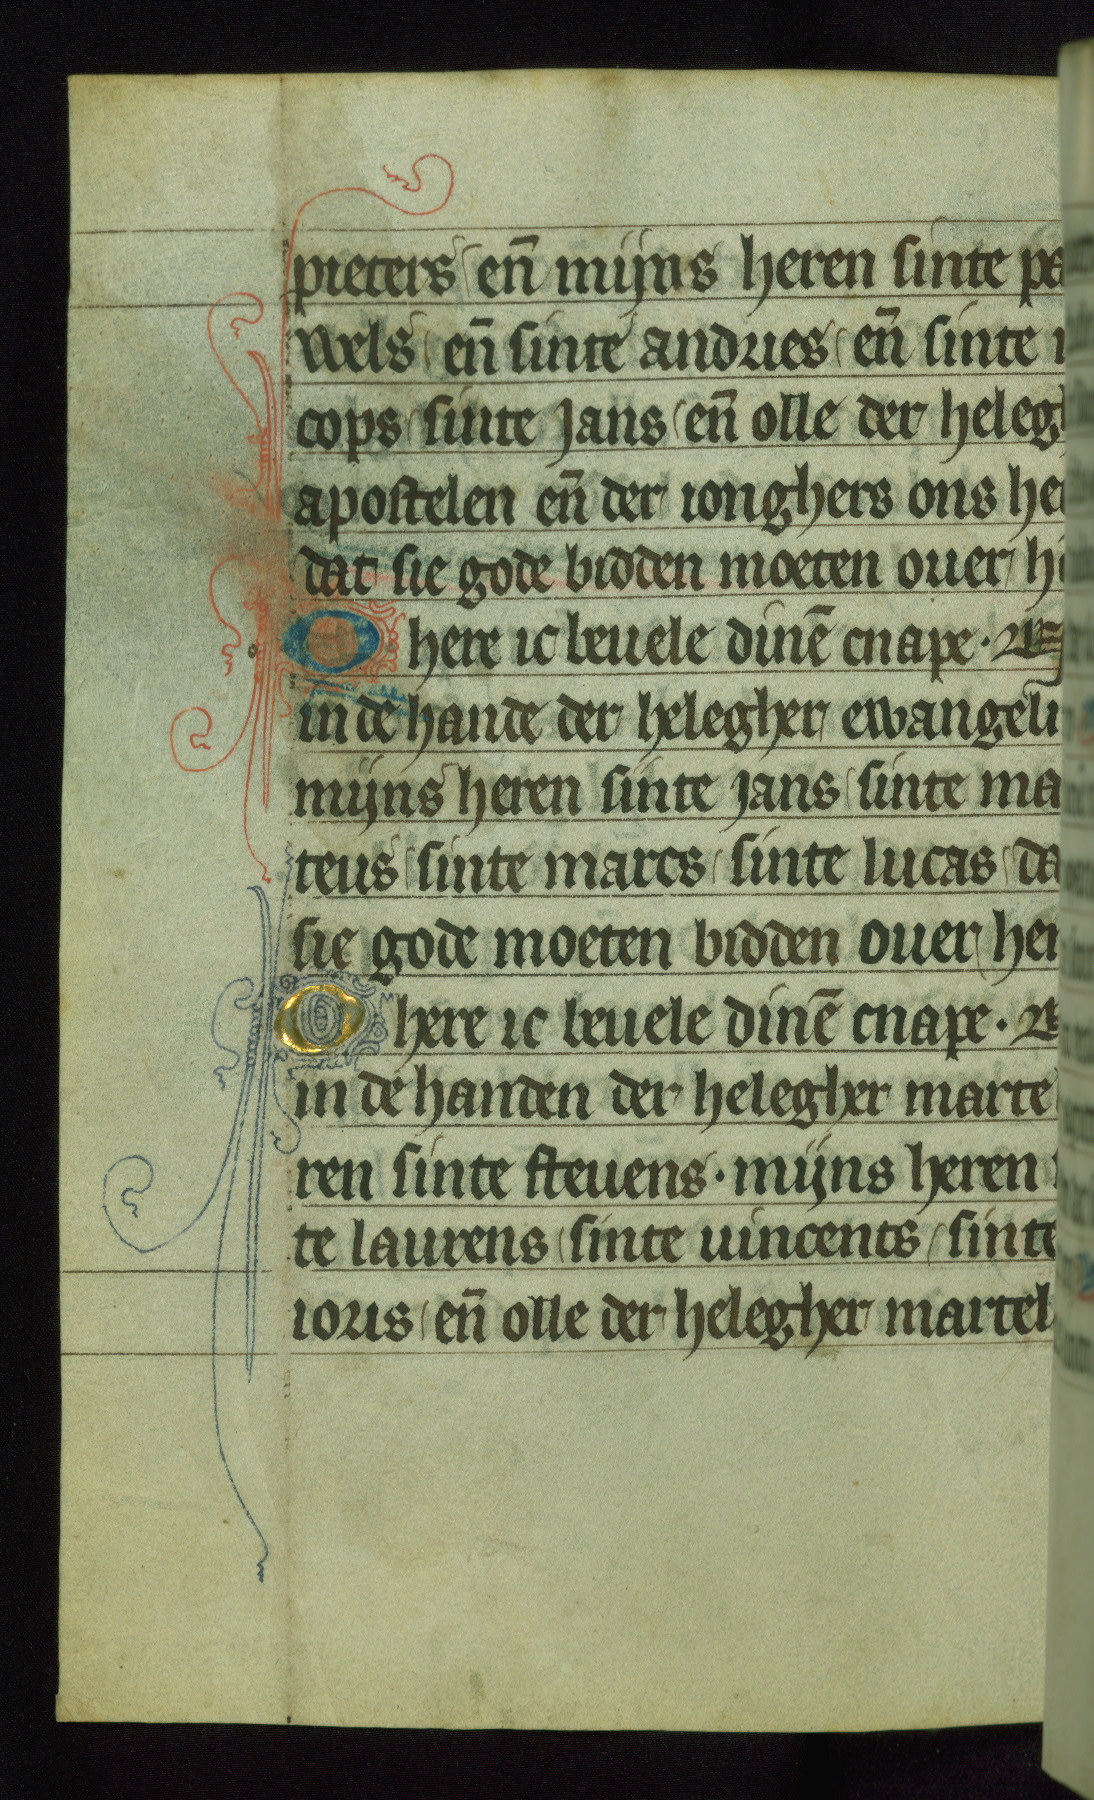 pieters / en̄ mijns heren sinte pa
wels / en̄ sinte andries / en̄ sinte
cops / sinte jans / en̄ olle der helegh
apostelen en̄ der ionghers ons he
dat sie gode bidden moeten ouer / h
O here ic beuele dinē cnape · N
in de hande der helegher ewangeli
mijns heren sinte jans / sinte ma
teus / sinte marcs / sinte lucas / da
sie gode moeten bidden ouer / hen
O here ic beuele dinē cnape · N
in de handen der helegher marte
ren sinte steuens · mijns heren
te laurens / sinte uincents / sinte
ioris / en̄ olle der helegher martel